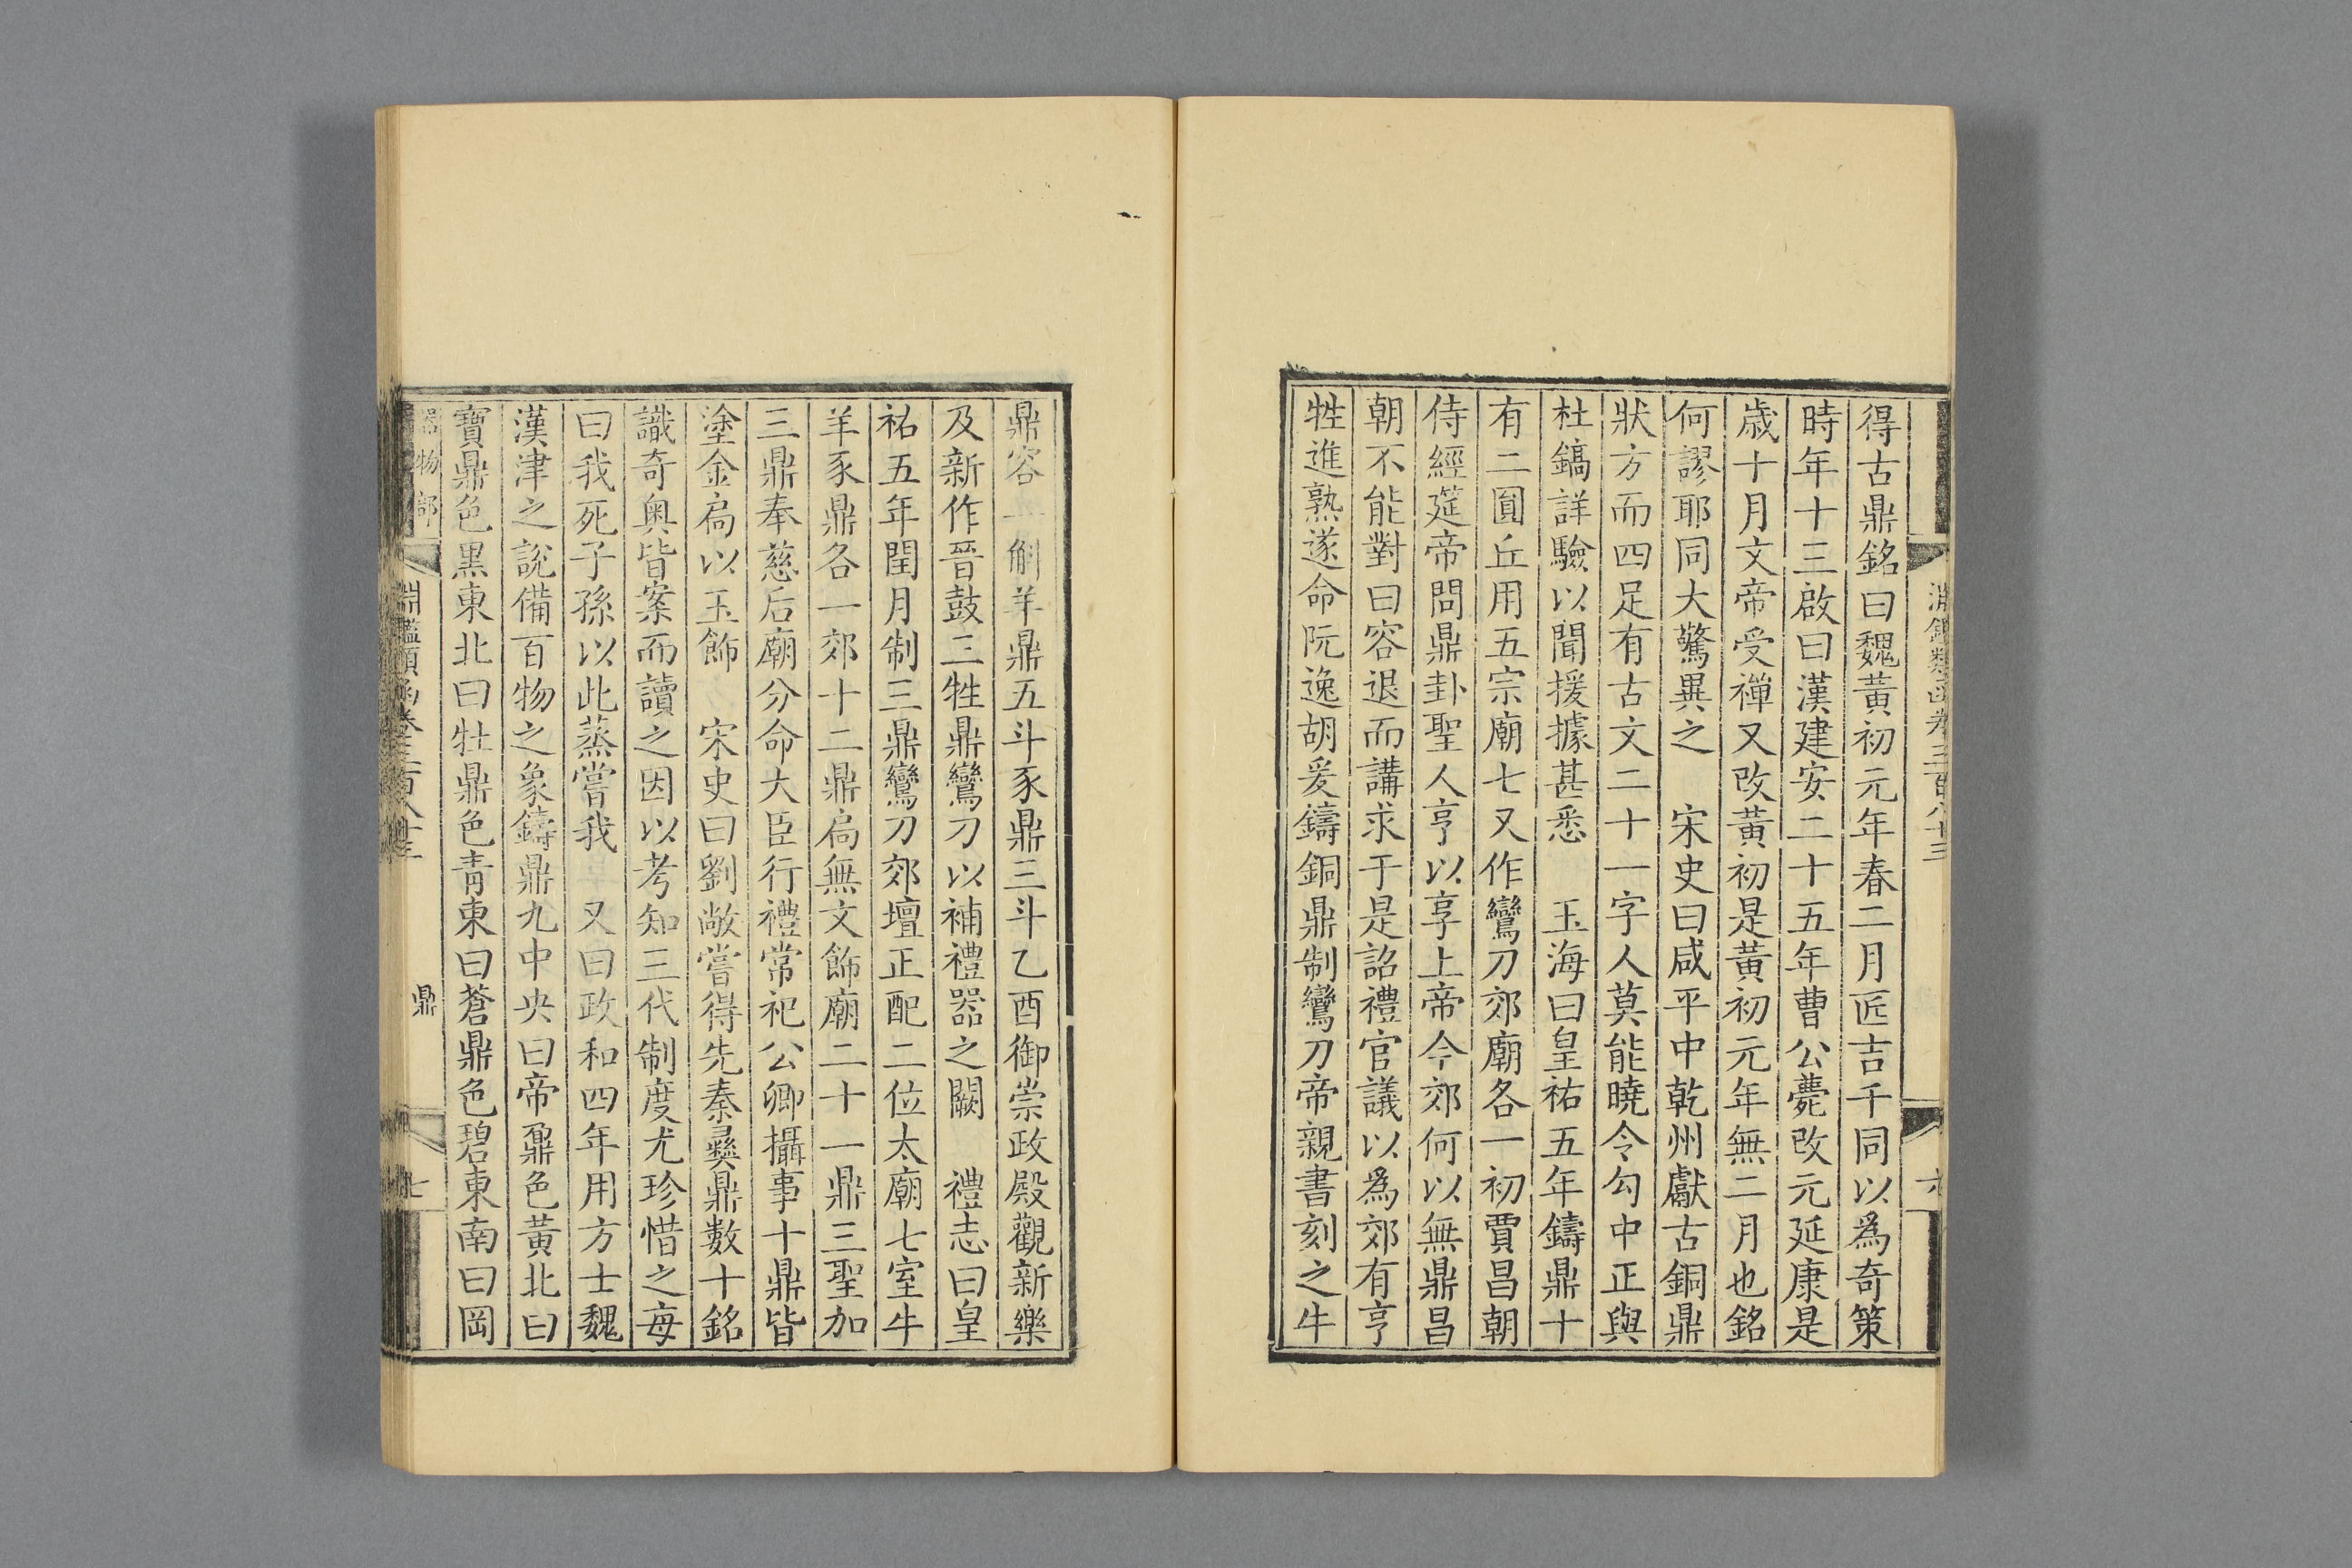 得古鼎銘曰魏黃初元年春二月匠吉千同以爲奇策
時年十三啟曰漢建安二十五年曹公薨改元延康是
歲十月文帝受禪又改黃初是黃初元年無二月也銘
何謬耶同大驚異之　宋史曰咸平中乾州獻古銅鼎
狀方而四足有古文二十一字人莫能曉令勾中正與
杜鎬詳驗以聞援據甚悉　玉海曰皇祐五年鑄鼎十
有二圓丘用五宗廟七又作鸞刀郊廟各一初賈昌朝
侍經筵帝問鼎卦聖人亨以享上帝今郊何以無鼎昌
朝不能對曰容退而講求于是詔禮官議以爲郊有亨
牲進熟遂命阮逸胡爰鑄銅鼎制鸞刀帝親書刻之牛
淵鑑類函卷三百八十三
六
鼎容一斛羊鼎五斗豕鼎三斗乙酉御崇政殿觀新樂
及新作晉鼓三牲鼎鸞刀以補禮器之闕　禮志曰皇
祐五年閏月制三鼎鸞刀郊壇正配二位太廟七室牛
羊豕鼎各一郊十二鼎扃無文飾廟二十一鼎三聖加
三鼎奉慈后廟分命大臣行禮常祀公卿攝事十鼎皆
塗金扃以玉飾　宋史曰劉敞嘗得先秦彛鼎數十銘
識奇奧皆案而讀之因以考知三代制度尤珍惜之每
曰我死子孫以此蒸嘗我　又曰政和四年用方士魏
漢津之說備百物之象鑄鼎九中央曰帝鼐色黃北曰
寶鼎色黑東北曰牡鼎色青東曰蒼鼎色碧東南曰岡
器物部
淵鑑類函卷三百八十三
鼎
七